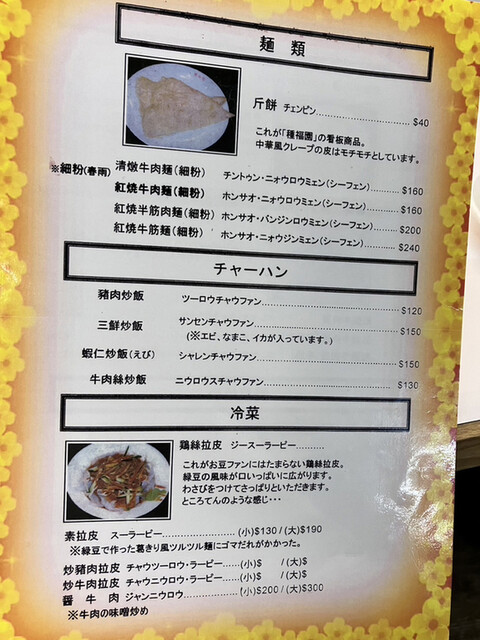 麺　類
斤餅 チェンピン.......................... $40
これが「種福園」の看板商品。
中華風クレープの皮はモチモチとしています。
※細粉(春雨)
清燉牛肉麺(細粉) チントゥン・ニョウロウミェン(シーフェン)........... $160
紅焼牛肉麺(細粉) ホンサオ・ニョウロウミェン(シーフェン)........... $160
紅焼半筋肉麺(細粉) ホンサオ・バンジンロウミェン(シーフェン)......... $200
紅焼牛筋麺(細粉) ホンサオ・ニョウジンミェン(シーフェン)........... $240
チャーハン
豬肉炒飯 ツーロウチャウファン............................................... $120
三鮮炒飯 サンセンチャウファン............................................... $150
(※エビ、なまこ、イカが入っています。)
蝦仁炒飯(えび) シャレンチャウファン............................................... $150
牛肉絲炒飯 ニウロウスチャウファン............................................... $130
冷菜
鶏絲拉皮 ジースーラーピー..........
これがお豆ファンにはたまらない鶏絲拉皮。
緑豆の風味が口いっぱいに広がります。
わさびをつけてさっぱりといただきます。
ところてんのような感じ・・・
素拉皮 スーラーピー............................ (小)$130 / (大)$190
※緑豆で作った葛きり風ツルツル麺にゴマだれがかかった。
炒豬肉拉皮 チャウツーロウ・ラーピー......(小)$ / (大)$
炒牛肉拉皮 チャウニウロウ・ラーピー......(小)$ / (大)$
醤 牛 肉 ジャンニウロウ..................(小)$200 / (大)$300
※牛肉の味噌炒め